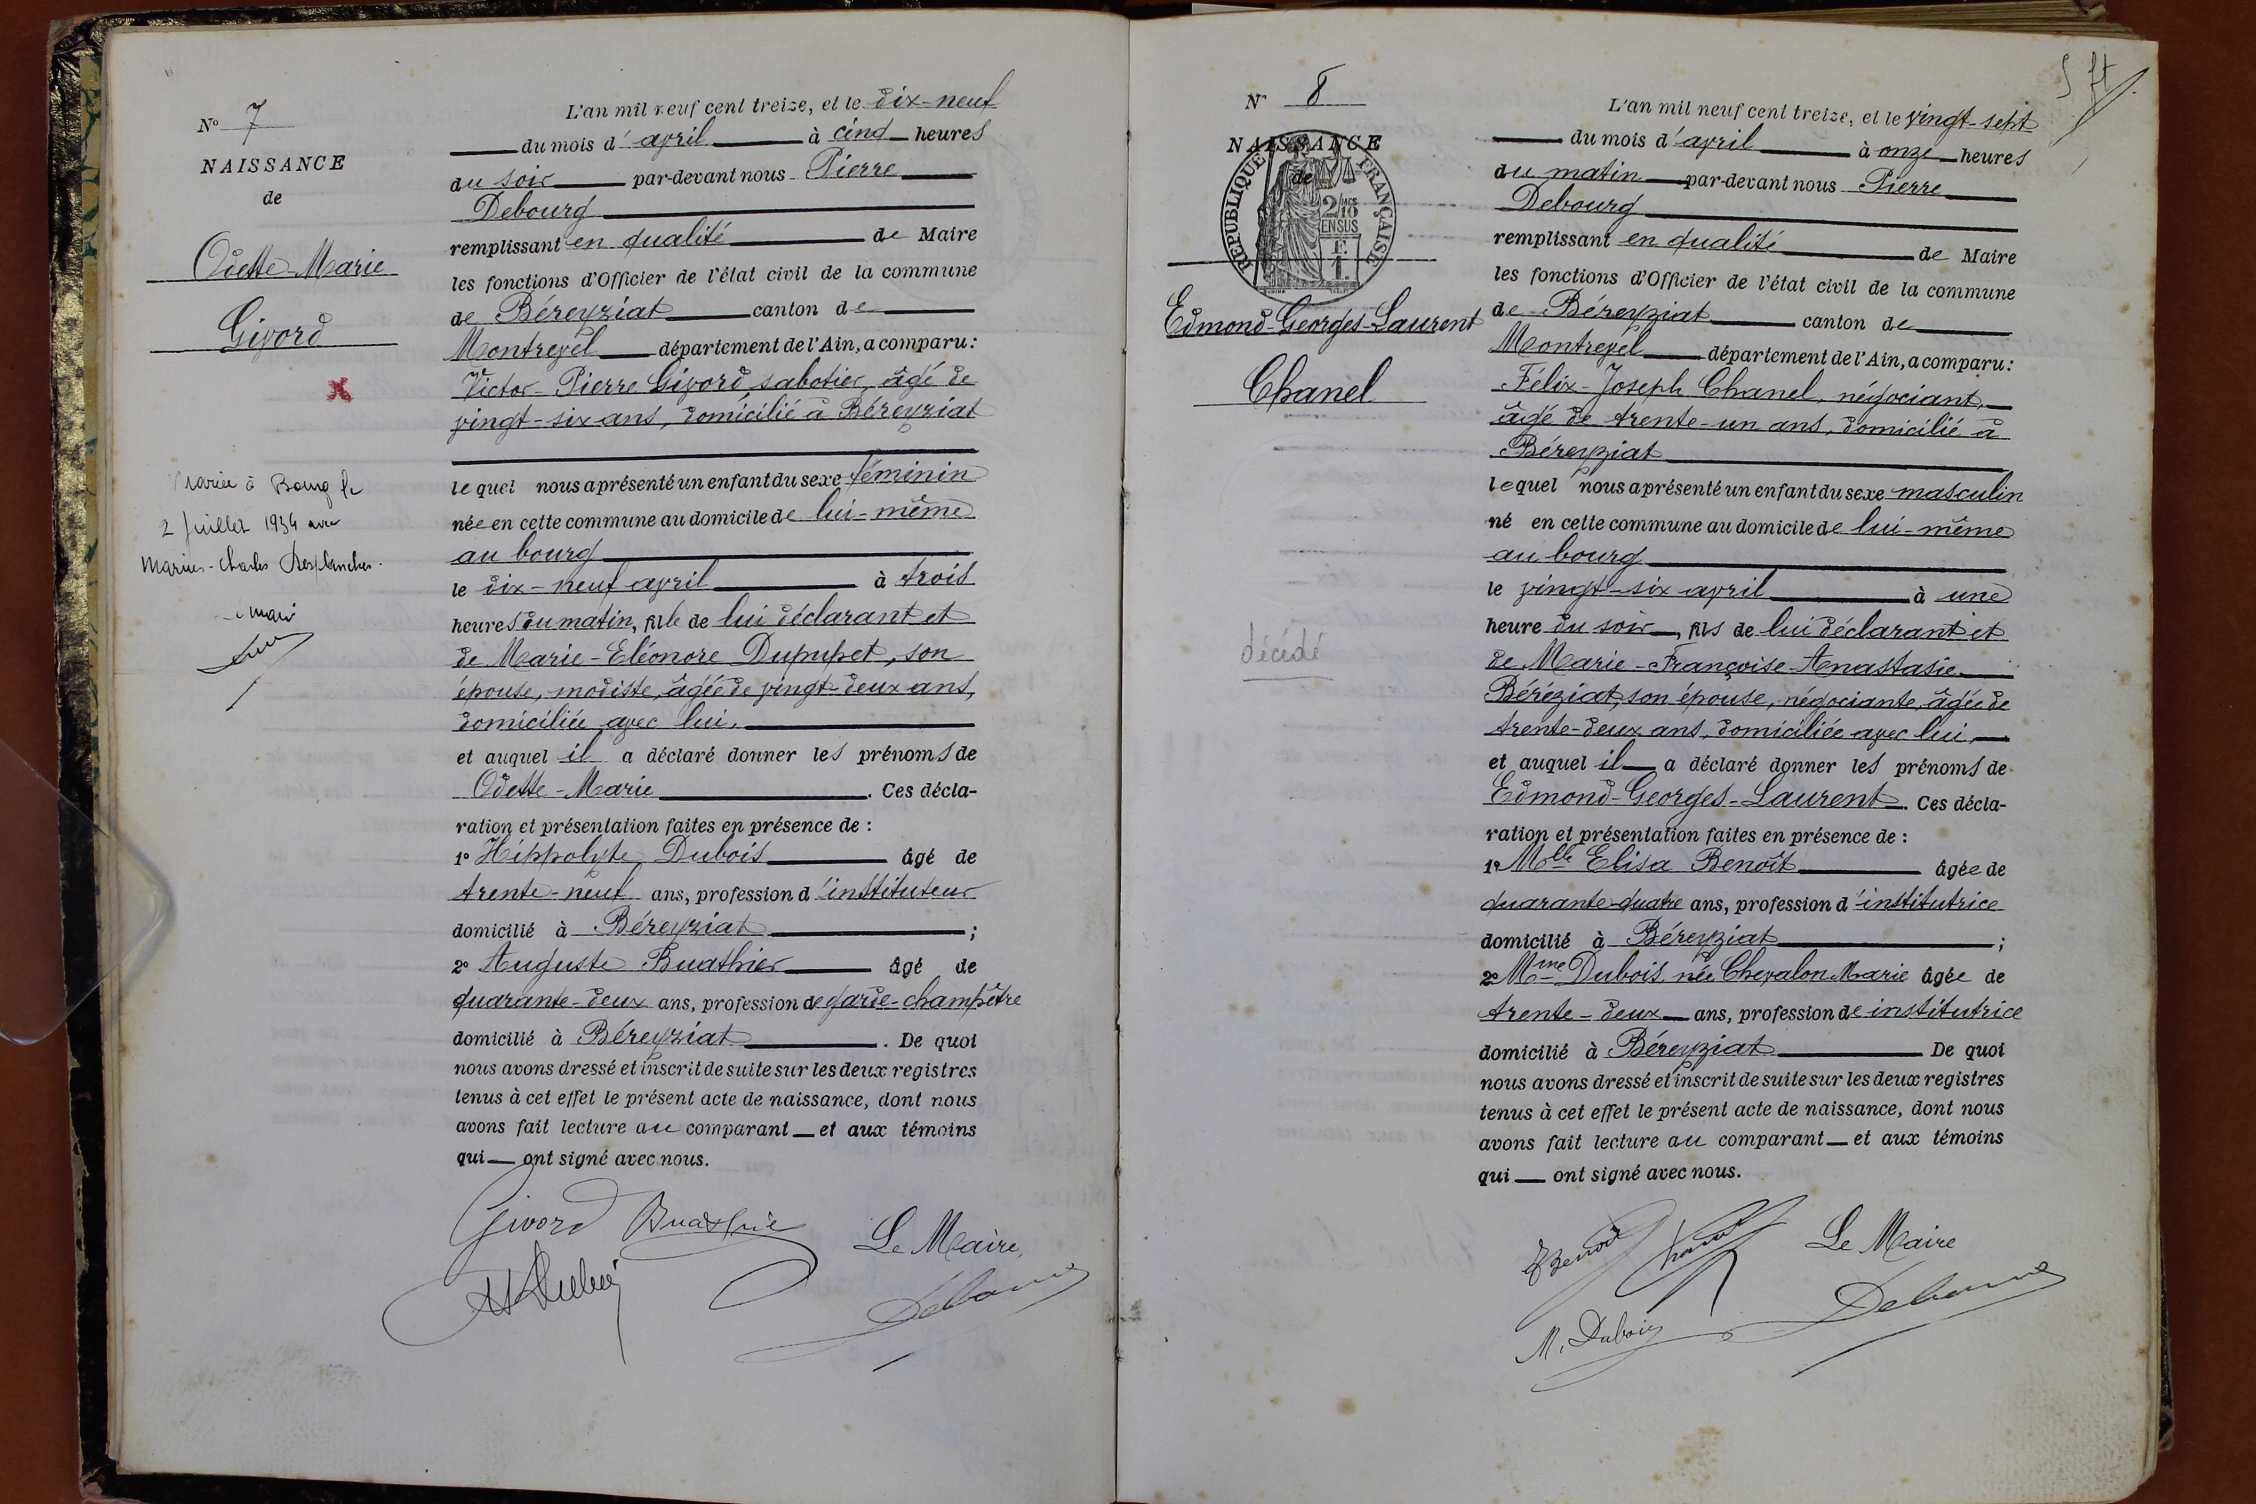 N° 7
NAISSANCE
de
Odette-Marie
Givord
x
Mariée à Bourg le
2 Juillet 1934 avec
Marius-Charles
L'an mil neuf cent treize, et le dix-neuf
du mois d'avril à cinq heures
du soir par-devant nous Pierre
Debourg
remplissant en qualité de Maire
les fonctions d'Officier de l'état civil de la commune
de Béreyziat canton de
Montrevel département de l'Ain, a comparu :
Victor-Pierre Givord, sabotier, âgé de
vingt-six ans, domicilié à Béreyziat
lequel nous a présenté un enfant du sexe féminin
née en cette commune au domicile de lui-même
au bourg
le dix-neuf avril à trois
heures du matin, fille de lui déclarant et
de Marie-Eléonore Dupupet, son
épouse, modiste, âgée de vingt-deux ans,
domiciliée avec lui,
et auquel il a déclaré donner les prénoms de
Odette-Marie. Ces décla-
ration et présentation faites en présence de :
1° Hippolyte Dubois âgé de
trente-neuf ans, profession d'instituteur
domicilié à Béreyziat ;
2° Auguste Buathier âgé de
quarante-deux ans, profession de garde-champêtre
domicilié à Béreyziat. De quoi
nous avons dressé et inscrit de suite sur les deux registres
tenus à cet effet le présent acte de naissance, dont nous
avons fait lecture au comparant et aux témoins
qui ont signé avec nous.
Givord Buathier
Le Maire,
H Dubois
Debourg
5 ft
N° 8
NAISSANCE
de
REPUBLIQUE FRANÇAISE
2/10 EN SUS
Edmond-Georges-Laurent
Chanel
décédé
L'an mil neuf cent treize, et le vingt-sept
du mois d'avril à onze heures
du matin par-devant nous Pierre
Debourg
remplissant en qualité de Maire
les fonctions d'Officier de l'état civil de la commune
de Béreyziat canton de
Montrevel département de l'Ain, a comparu :
Félix-Joseph Chanel, négociant,
âgé de trente-un ans, domicilié à
Béreyziat
lequel nous a présenté un enfant du sexe masculin
né en cette commune au domicile de lui-même
au bourg
le vingt-six avril à une
heure du soir, fils de lui déclarant et
de Marie-Françoise-Anastasie
Béréziat, son épouse, négociante, âgée de
trente-deux ans, domiciliée avec lui,
et auquel il a déclaré donner les prénoms de
Edmond-Georges-Laurent. Ces décla-
ration et présentation faites en présence de :
1° Mlle Elisa Benoît âgée de
quarante-quatre ans, profession d'institutrice
domicilié à Béreyziat ;
2° Mme Dubois née Chevalon Marie âgée de
trente-deux ans, profession de institutrice
domicilié à Béreyziat De quoi
nous avons dressé et inscrit de suite sur les deux registres
tenus à cet effet le présent acte de naissance, dont nous
avons fait lecture au comparant et aux témoins
qui ont signé avec nous.
E Benoit Chanel
Le Maire
M. Dubois
Debourg